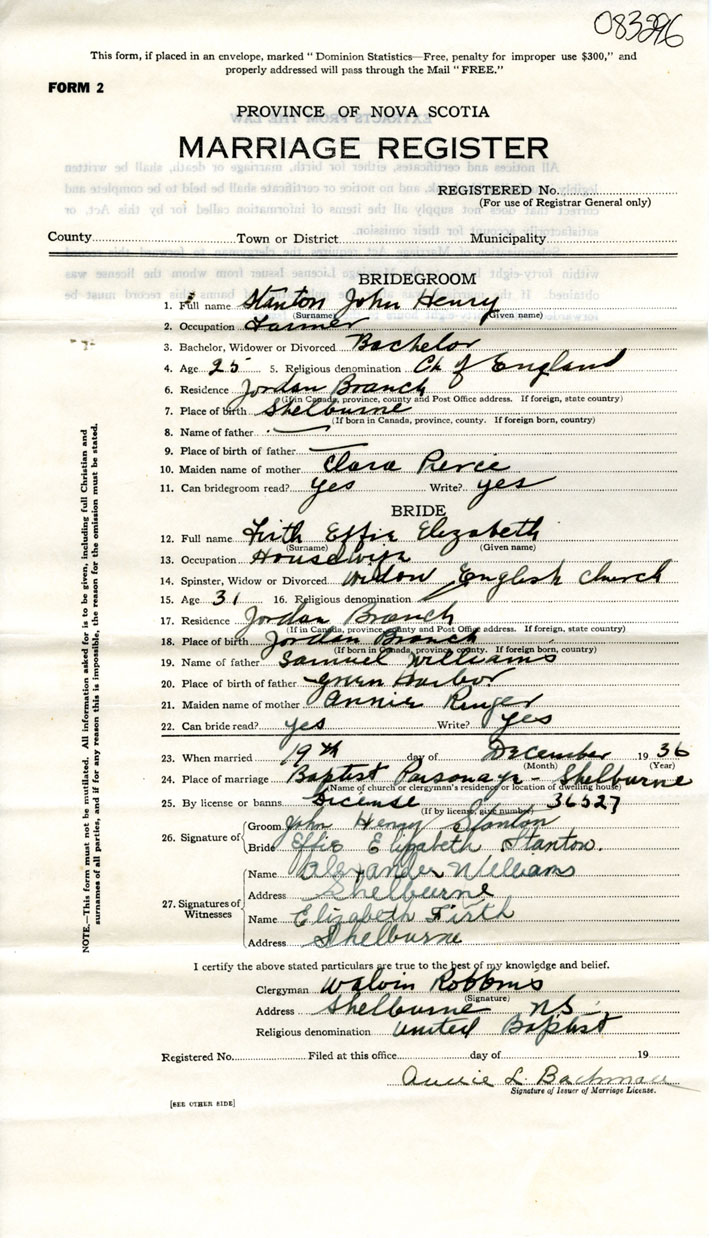 083296
This form, if placed in an envelope, marked "Dominion Statistics—Free, penalty for improper use $300," and
properly addressed will pass through the Mail "FREE."
FORM 2
PROVINCE OF NOVA SCOTIA
MARRIAGE REGISTER
REGISTERED No.
(For use of Registrar General only)
County Town or District Municipality
BRIDEGROOM
1. Full name Stanton John Henry
(Surname) (Given name)
2. Occupation Farmer
3. Bachelor, Widower or Divorced Bachelor
4. Age 25 5. Religious denomination Ch of England
6. Residence Jordan Branch
(If in Canada, province, county and Post Office address. If foreign, state country)
7. Place of birth Shelburne
(If born in Canada, province, county. If foreign born, country)
8. Name of father —
9. Place of birth of father —
10. Maiden name of mother Clara Pierce
11. Can bridegroom read? yes Write? yes
BRIDE
12. Full name Firth Effie Elizabeth
(Surname) (Given name)
13. Occupation Housewife
14. Spinster, Widow or Divorced Widow English Church
15. Age 31 16. Religious denomination
17. Residence Jordan Branch
(If in Canada, province, county and Post Office address. If foreign, state country)
18. Place of birth Jordan Branch
(If born in Canada, province, county. If foreign born, country)
19. Name of father Samuel Williams
20. Place of birth of father Green Harbor
21. Maiden name of mother Annie Ringer
22. Can bride read? yes Write? yes
23. When married 19th day of December 1936
(Month) (Year)
24. Place of marriage Baptist Parsonage - Shelburne
(Name of church or clergyman's residence or location of dwelling house)
25. By license or banns License 36527
(If by license, give number)
26. Signature of Groom John Henry Stanton
Bride Effie Elizabeth Stanton.
27. Signatures of Witnesses
Name Alexander Williams
Address Shelburne
Name Elizabeth Firth
Address Shelburne
I certify the above stated particulars are true to the best of my knowledge and belief.
Clergyman Walvin Robbins
(Signature)
Address Shelburne NS
Religious denomination United Baptist
Registered No. Filed at this office day of 19
Annie L. Bachman
Signature of Issuer of Marriage License.
[SEE OTHER SIDE]
NOTE.—This form must not be mutilated. All information asked for is to be given, including full Christian and
surnames of all parties, and if for any reason this is impossible, the reason for the omission must be stated.